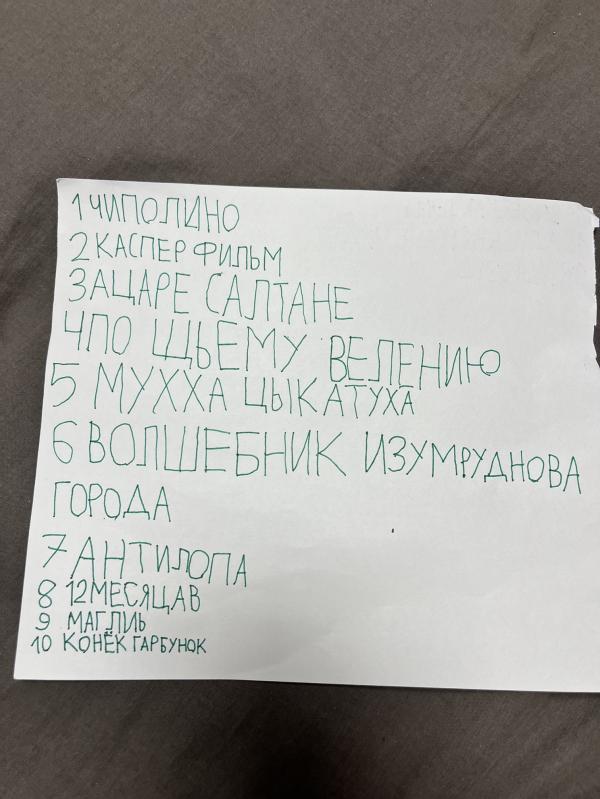 1 ЧИПОЛИНО
2 КАСПЕР ФИЛЬМ
3 АЦАРЕ САЛТАНЕ
4 ПО ЩЬЕМУ ВЕЛЕНИЮ
5 МУХХА ЦЫКАТУХА
6 ВОЛШЕБНИК ИЗУМРУДНОВА
ГОРОДА
7 АНТИЛОПА
8 12 МЕСЯЦАВ
9 МАГЛИЬ
10 КОНЁК ГАРБУНОК